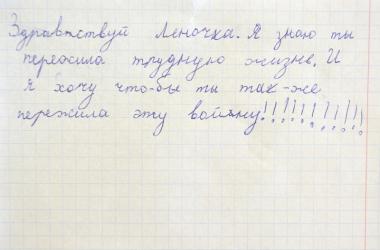 Здравствуй Леночка. Я знаю ты
пережила трудную жизнь. И
я хочу что-бы ты так-же
пережила эту войну!!!!!!!!!!!